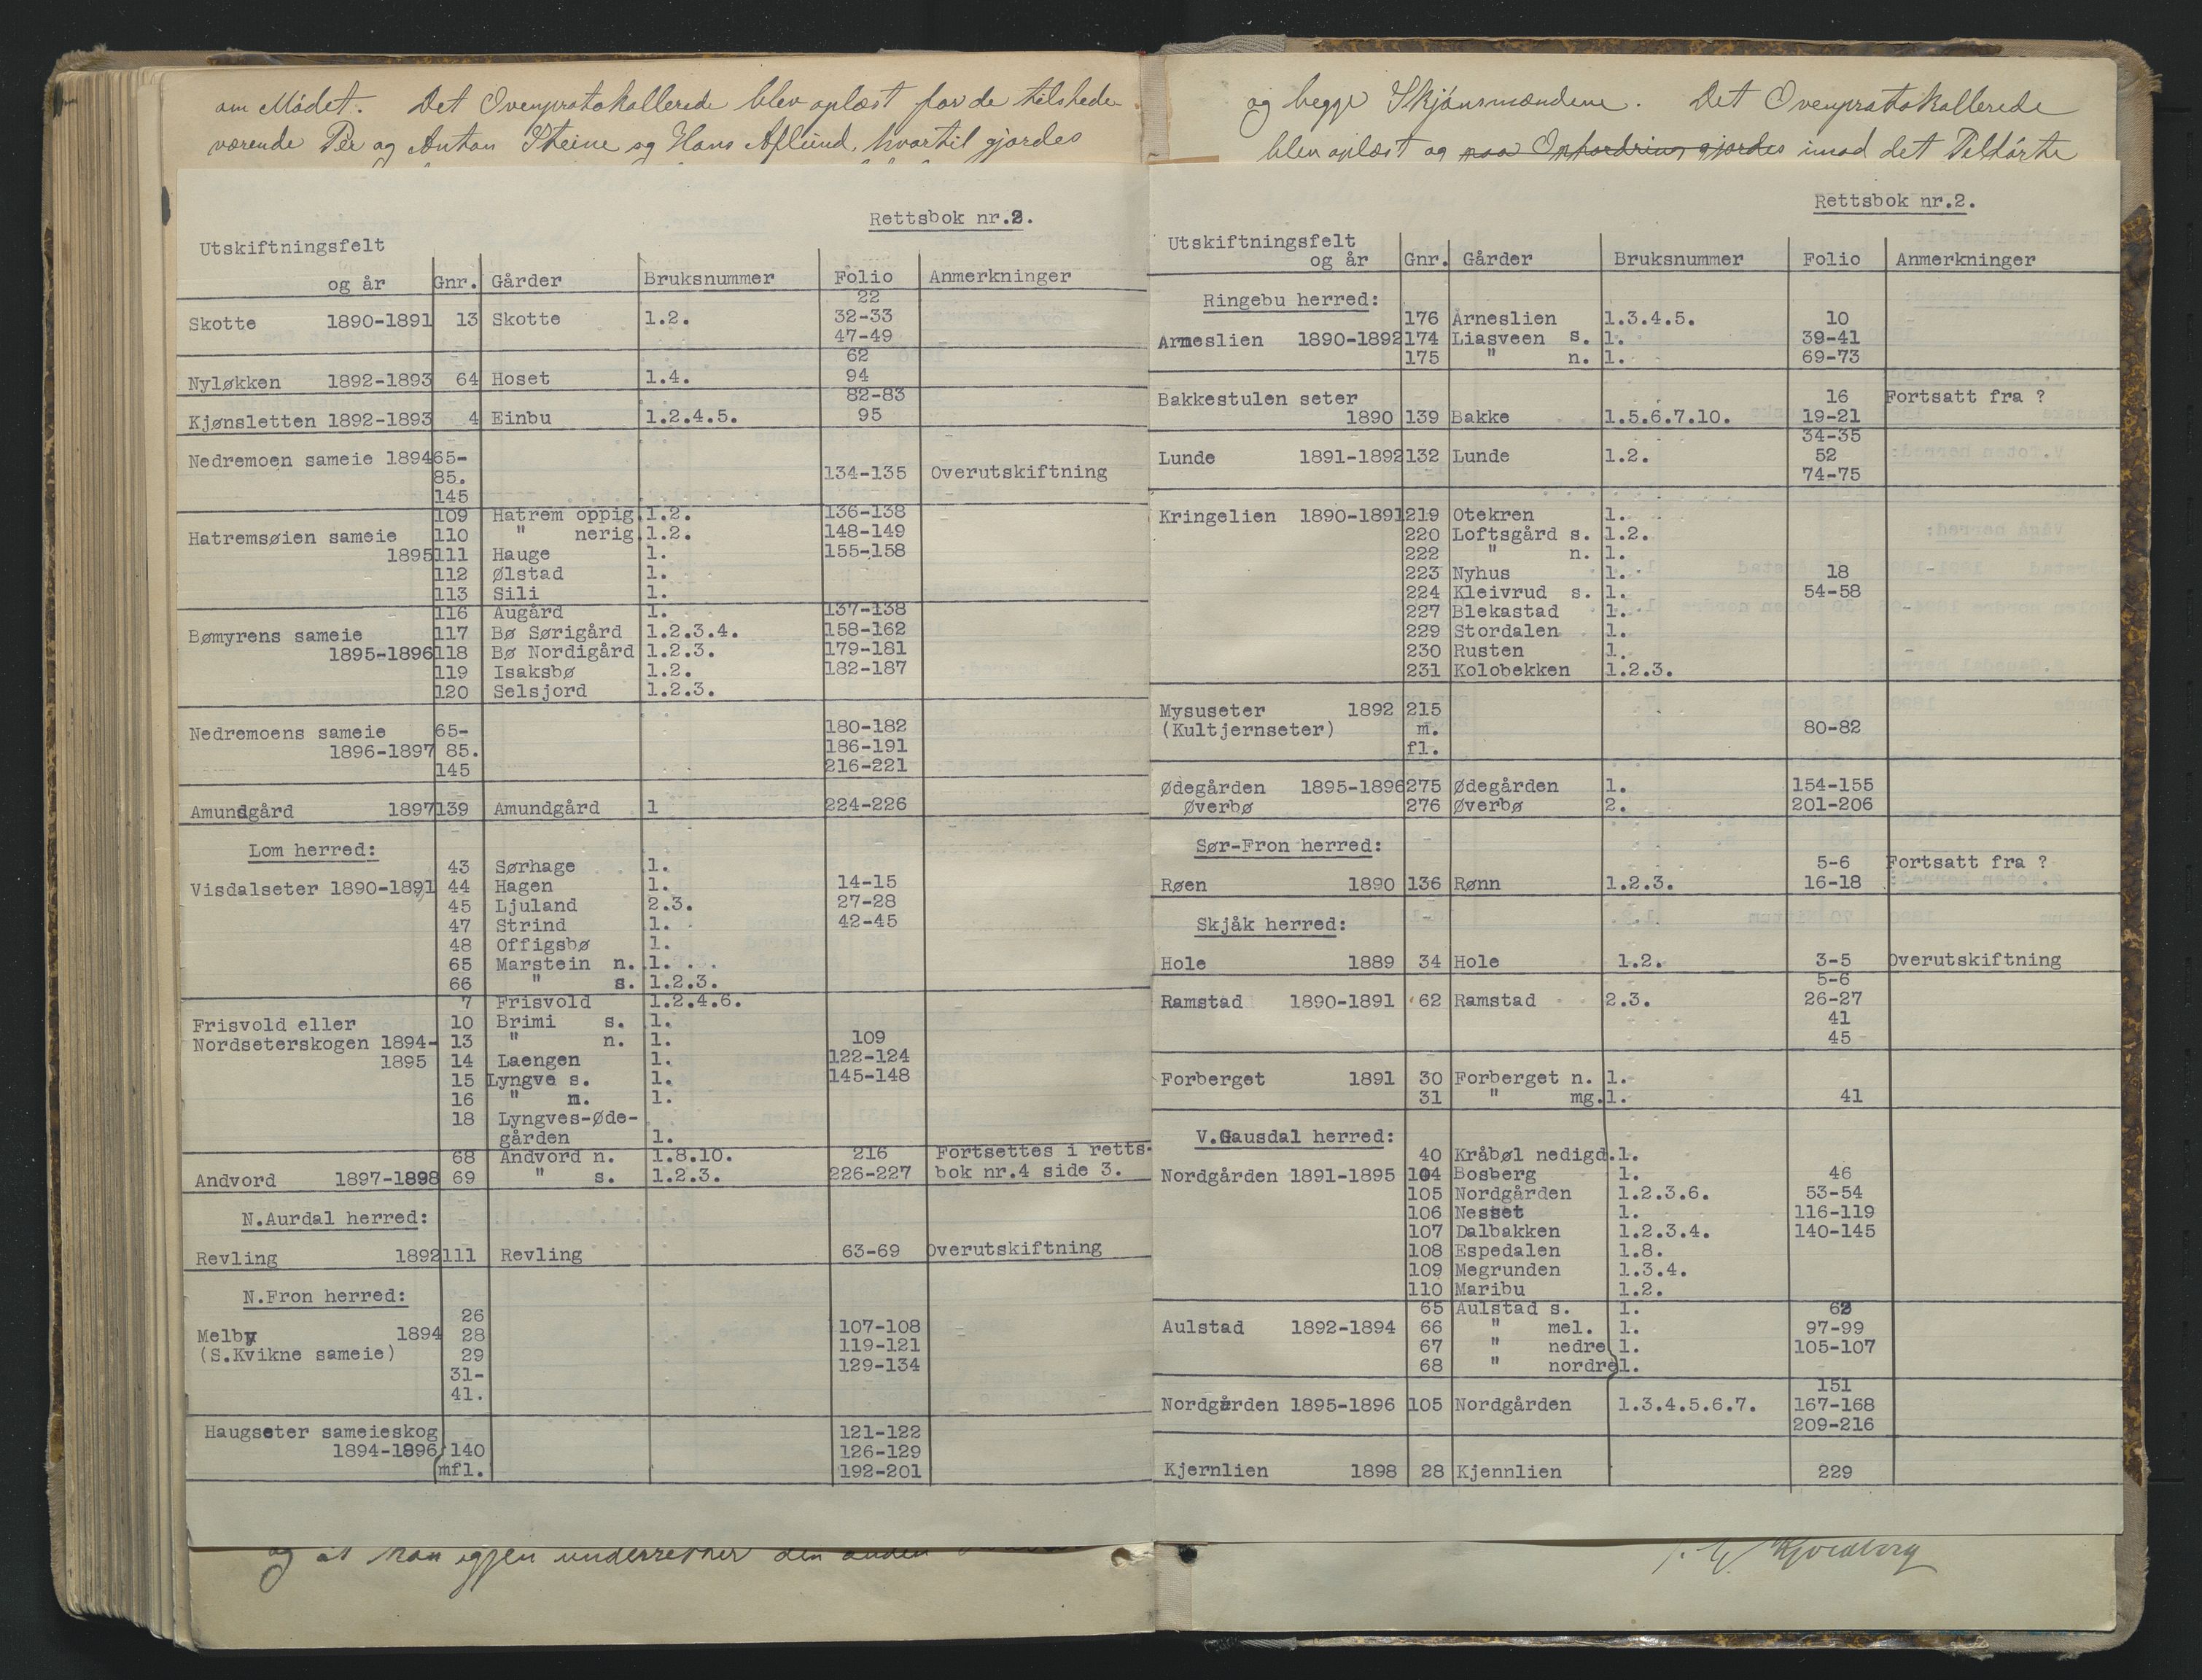 om Mødet. Det Ovenprotokollerede blev oplæst for de tilstede-
værende Per og Anton Steine og Hans Aflund, hvortil gjordes
Rettsbok nr.2.
Utskiftningsfelt
og år Gnr. Gårder Bruksnummer Folio Anmerkninger
22
Skotte 1890-1891 13 Skotte 1.2. 32-33
47-49
62
Nyløkken 1892-1893 64 Hoset 1.4. 94
82-83
Kjønsletten 1892-1893 4 Einbu 1.2.4.5. 95
Nedremoen sameie 1894 65-
85. 134-135 Overutskiftning
145
109 Hatrem oppig. 1.2. 136-138
Hatremsøien sameie 110 " nerig. 1.2. 148-149
1895 111 Hauge 1. 155-158
112 Ølstad 1.
113 Sili 1.
116 Augård 1. 137-138
Bømyrens sameie 117 Bø Sørigård 1.2.3.4. 158-162
1895-1896 118 Bø Nordigård 1.2.3. 179-181
119 Isaksbø 1.2. 182-187
120 Selsjord 1.2.3.
Nedremoens sameie 65- 180-182
1896-1897 85. 186-191
145 216-221
Amundgård 1897 139 Amundgård 1 224-226
Lom herred:
43 Sørhage 1.
Visdalseter 1890-1891 44 Hagen 1. 14-15
45 Ljuland 2.3. 27-28
47 Strind 1. 42-45
48 Offigsbø 1.
65 Marstein n. 1.
66 " s. 1.2.3.
7 Frisvold 1.2.4.6.
Frisvold eller 10 Brimi s. 1.
Nordseterskogen 1894- 13 " n. 1. 109
1895 14 Laengen 1. 122-124
15 Lyngve s. 1. 145-148
16 " n. 1.
18 Lyngves-øde-
gården 1.
68 Andvord n. 1.8.10. 216 Fortsettes i retts-
Andvord 1897-1898 69 " s. 1.2.3. 226-227 bok nr.4 side 3.
N.Aurdal herred:
Revling 1892 111 Revling 63-69 Overutskiftning
N.Fron herred:
26
Melby 1894 28 107-108
(S.Kvikne sameie) 29 119-121
31- 129-134
41.
Haugseter sameieskog 121-122
1894-1896 140 126-129
mfl. 192-201
og at han igjen underretter den anden
og begge Skjønsmændene. Det Ovenprotokollerede
blev oplæst og paa Opfordring gjordes imod det Tilførte
Rettsbok nr.2.
Utskiftningsfelt
og år Gnr. Gårder Bruksnummer Folio Anmerkninger
Ringebu herred:
176 Arneslien 1.3.4.5. 10
Arneslien 1890-1892 174 Liasveen s. 1. 39-41
175 " n. 1. 69-73
Bakkestulen seter 16 Fortsatt fra ?
1890 139 Bakke 1.5.6.7.10. 19-21
34-35
Lunde 1891-1892 132 Lunde 1.2. 52
74-75
Kringelien 1890-1891 219 Otekren 1.
220 Loftsgård s. 1.2.
222 " n. 1.
223 Nyhus 1. 18
224 Kleivrud s. 1. 54-58
227 Blekastad 1.
229 Stordalen 1.
230 Rusten 1.
231 Kolobekken 1.2.3.
Mysuseter 1892 215
(Kultjernseter) m. 80-82
fl.
Ødegården 1895-1896 275 Ødegården 1. 154-155
Øverbø 276 Øverbø 2. 201-206
Sør-Fron herred:
5-6 Fortsatt fra ?
Røen 1890 136 Rønn 1.2.3. 16-18
Skjåk herred:
Hole 1889 34 Hole 1.2. 3-5 Overutskiftning
5-6
Ramstad 1890-1891 62 Ramstad 2.3. 26-27
41
45
Forberget 1891 30 Forberget n. 1.
31 " mg. 1. 41
V.Gausdal herred:
40 Kråbøl nedigd. 1.
Nordgården 1891-1895 104 Bosberg 1. 46
105 Nordgården 1.2.3.6. 53-54
106 Nesset 1. 116-119
107 Dalbakken 1.2.3.4. 140-145
108 Espedalen 1.8.
109 Megrunden 1.3.4.
110 Maribu 1.2.
65 Aulstad s. 1. 62
Aulstad 1892-1894 66 " mel. 1. 97-99
67 " nedre 1. 105-107
68 " nordre 1.
151
Nordgården 1895-1896 105 Nordgården 1.3.4.5.6.7. 167-168
209-216
Kjernlien 1898 28 Kjennlien 229